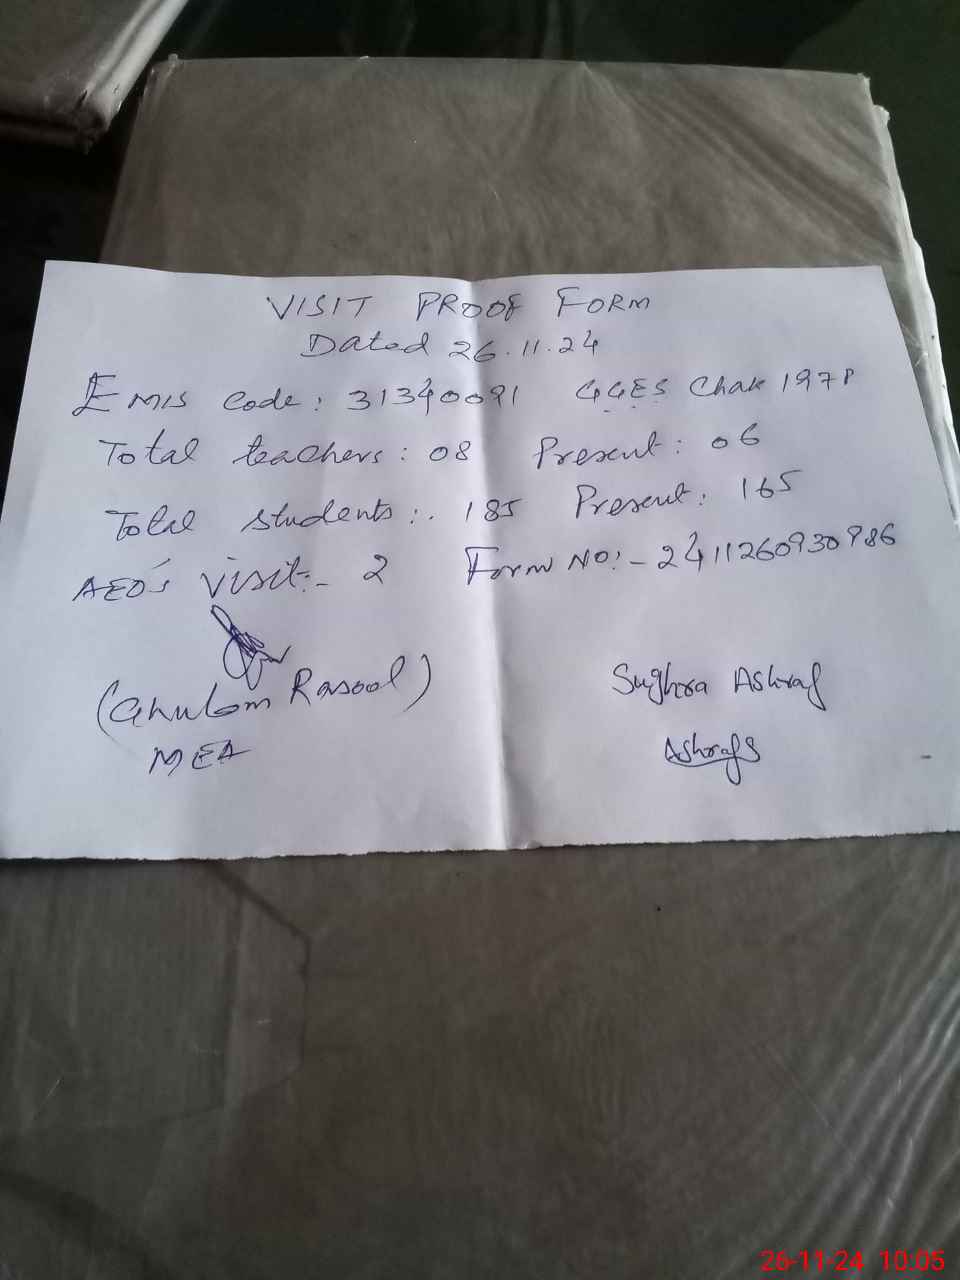 VISIT PROOF FORM
Dated 26.11.24
EMIS Code: 31340091 GGES Chak 197P
Total teachers: 08 Present: 06
Total students:. 185 Present: 165
AEO's visit:- 2 Form NO:- 2411260930986
(Ghulam Rasool) Sughra Ashraf
MEA AshrafS
26-11-24 10:05